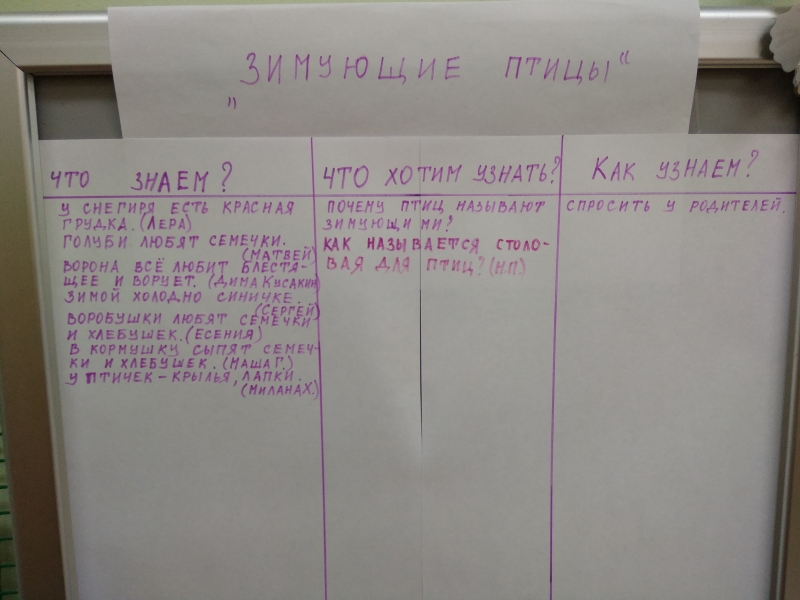 „ЗИМУЮЩИЕ ПТИЦЫ“
ЧТО ЗНАЕМ?
У СНЕГИРЯ ЕСТЬ КРАСНАЯ
ГРУДКА. (ЛЕРА)
ГОЛУБИ ЛЮБЯТ СЕМЕЧКИ.
(МАТВЕЙ)
ВОРОНА ВСЁ ЛЮБИТ БЛЕСТЯ-
ЩЕЕ И ВОРУЕТ. (ДИМА КУСАКИН)
ЗИМОЙ ХОЛОДНО СИНИЧКЕ.
(СЕРГЕЙ)
ВОРОБУШКИ ЛЮБЯТ СЕМЕЧКИ
И ХЛЕБУШЕК. (ЕСЕНИЯ)
В КОРМУШКУ СЫПЯТ СЕМЕЧ-
КИ И ХЛЕБУШЕК. (МАША Г.)
У ПТИЧЕК – КРЫЛЬЯ, ЛАПКИ.
(МИЛАНА Х.)
ЧТО ХОТИМ УЗНАТЬ?
ПОЧЕМУ ПТИЦ НАЗЫВАЮТ
ЗИМУЮЩИМИ?
КАК НАЗЫВАЕТСЯ СТОЛО-
ВАЯ ДЛЯ ПТИЦ? (Н.П.)
КАК УЗНАЕМ?
СПРОСИТЬ У РОДИТЕЛЕЙ.